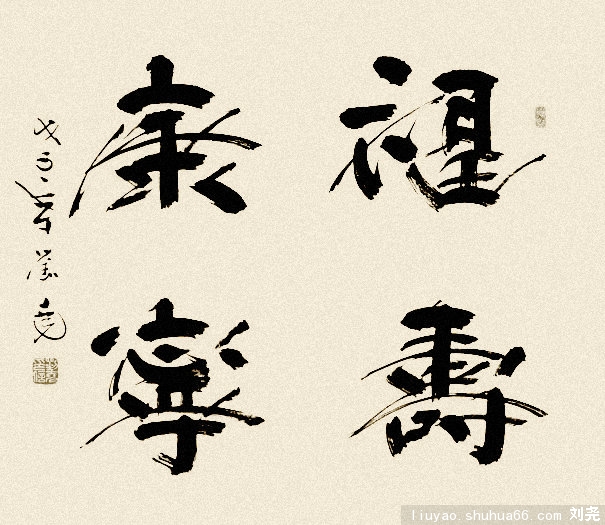 福壽
康寧
liuyao.shuhua66.com 刘尧